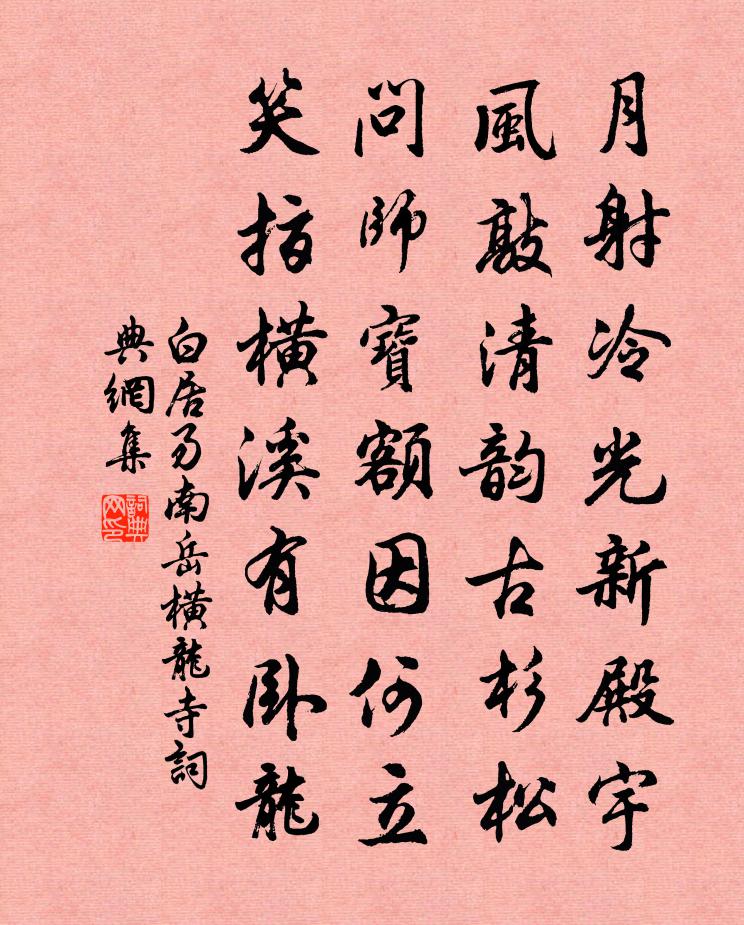 月射冷光新殿宇
風敲清韵古杉松
問師寶額因何立
笑指橫溪有臥龍
白居易南岳橫龍寺詞
典網集
詞典
网印